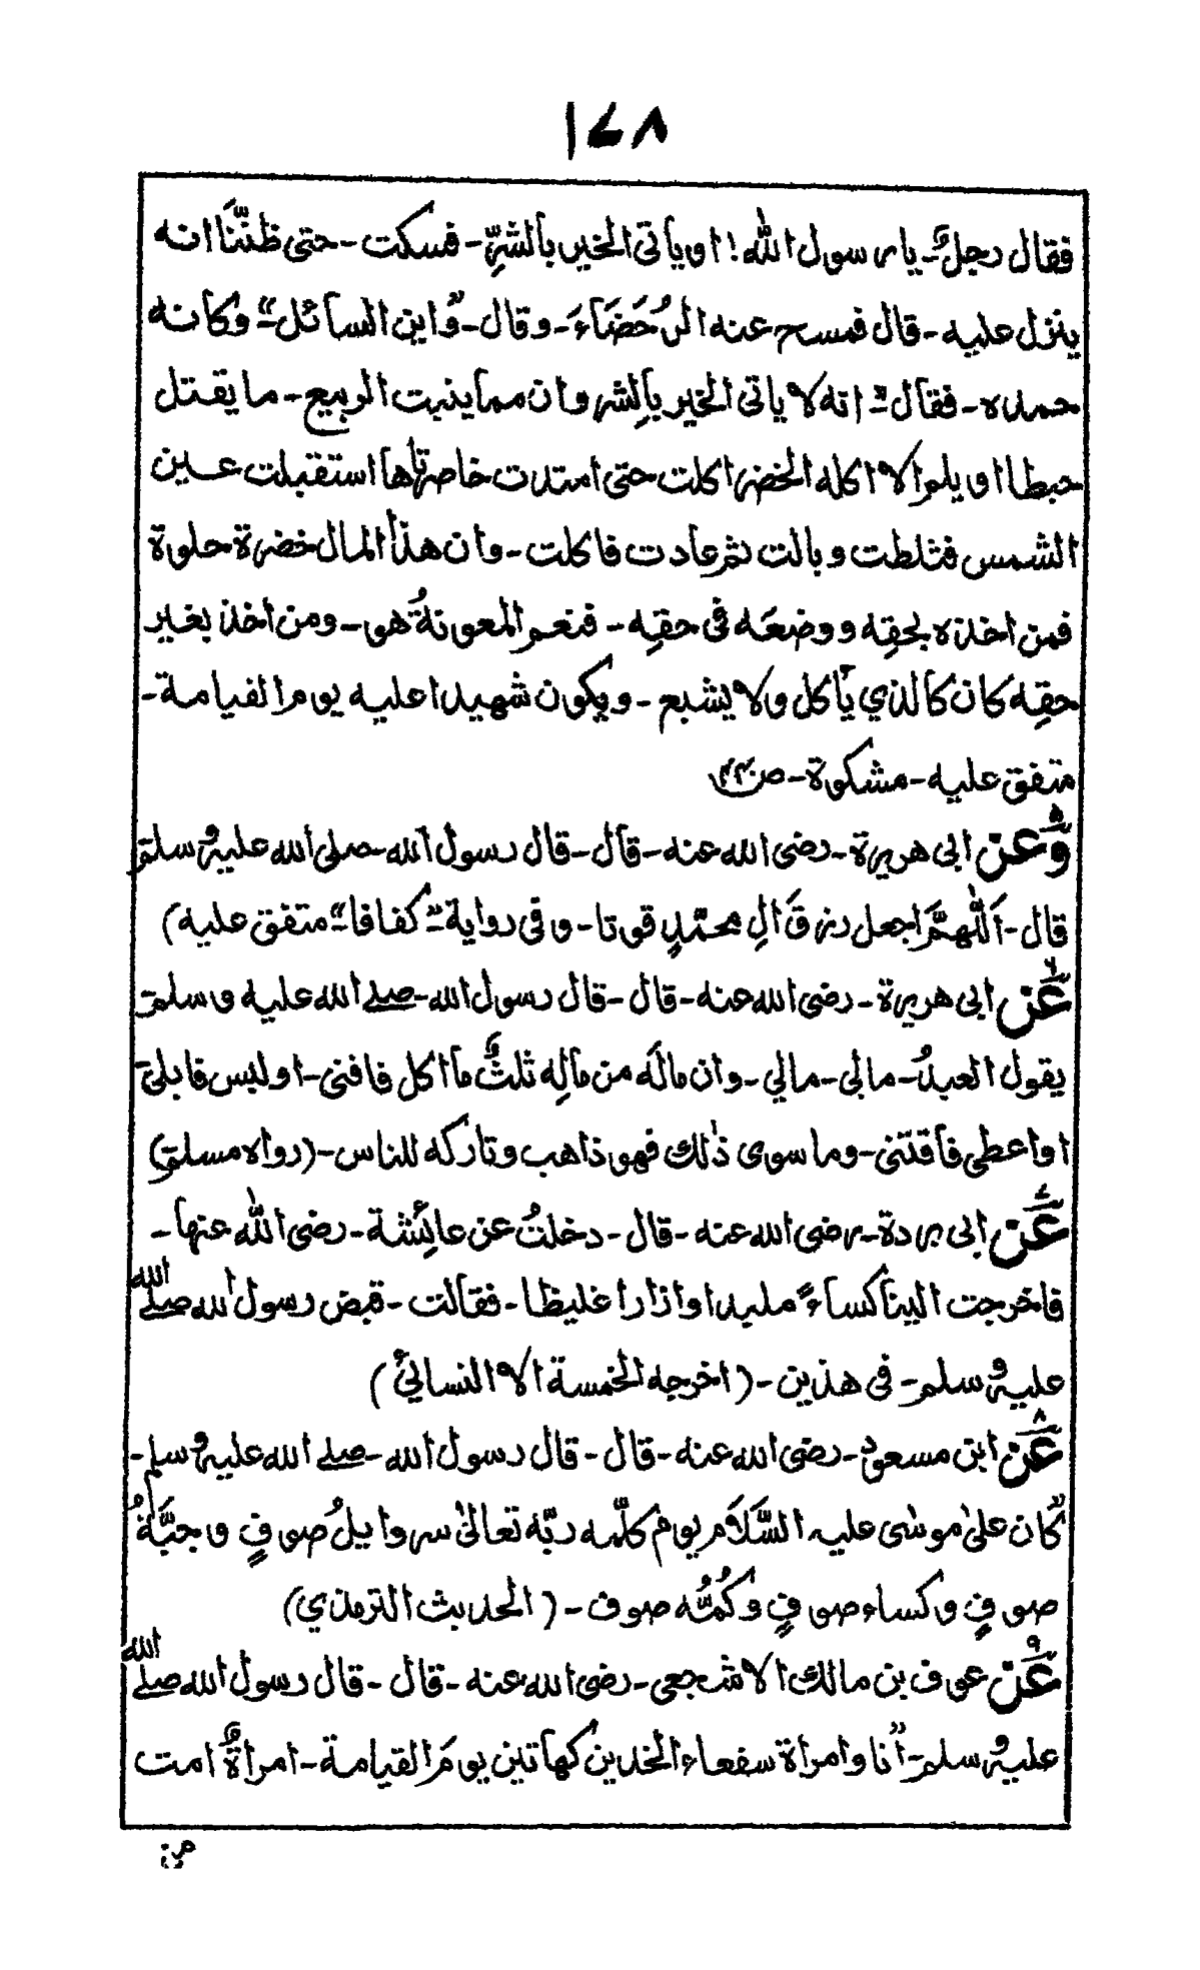 ١٤٨
فقال رجلٌ۔ یا رسول اللّٰه! او یأتی الخیر بالشرِّ۔ فسکت۔ حتی ظننَّا انه
ینزل علیه۔ قال فمسح عنه الرُحَضَاءَ۔ وقال۔ "واین السائل"۔ وکانه
حمده۔ فقال۔" انه لا یاتی الخیر بالشر وان مما ینبت الربیع۔ ما یقتل
حبطا او یلم الا اکله الخضر اکلت حتی امتدت خاصرتاها استقبلت عین
الشمس فثلطت وبالت ثم عادت فاکلت۔ وان هذا المال خضرة حلوة
فمن اخذه بحقِه ووضعَه فی حقِه۔ فنعم المعونةُ هو۔ ومن اخذ بغیر
حقِه کان کالذي یأکل ولا یشبع۔ ویکون شهیدا علیه یوم القیامة۔
متفق علیه۔ مشکوة۔
٥ وَعن ابی هریرة۔ رضی الله عنه۔ قال۔ قال رسول الله۔ صلی الله علیه وسلم
قال۔ اَللّٰهمَّ اجعل رزقَ اٰلِ محمّدٍ قوتا۔ وفی روایة۔" کفافا"۔ متفق علیه)
٦ عَن ابی هریرة۔ رضی الله عنه۔ قال۔ قال رسول الله۔ صلے الله علیه وسلم
یقول العبدُ۔ مالی۔ مالي۔ وان مالَه من مالِه ثلثٌ ما اکل فافنی۔ او لبس فابلیٰ
او اعطی فاقتنی۔ وما سوی ذٰلك فهو ذاهب وتارکه للناس۔ (رواه مسلم)
٧ عَن ابی بردة۔ رضی الله عنه۔ قال۔ دخلتُ عن عائشة۔ رضی اللّٰه عنها۔
فاخرجت الینا کساءً ملبدا وازارا غلیظا۔ فقالت۔ قبض رسول الله صلے الله
علیه وسلم۔ فی هذین۔ (اخرجه الخمسة الا النسائیؒ)
٨ عَن ابن مسعود۔ رضی الله عنه۔ قال۔ قال رسول الله۔ صلے الله علیه وسلم۔
"کان علیٰ موسٰی علیه السَّلاَم یوم کلّمه ربّه تعالیٰ سروایلُ صوفٍ وجبَّةُ
صوفٍ وکساء صوفٍ وکُمُّه صوف۔ (الحدیث الترمذي)
٩ عَن عوف بن مالك الاشجعی۔ رضی الله عنه۔ قال۔ قال رسول الله صلے الله
علیه وسلم۔" انا وامراة سفعاء الخدین کهاتین یومَ القیامة۔ امراةٌ امت
من